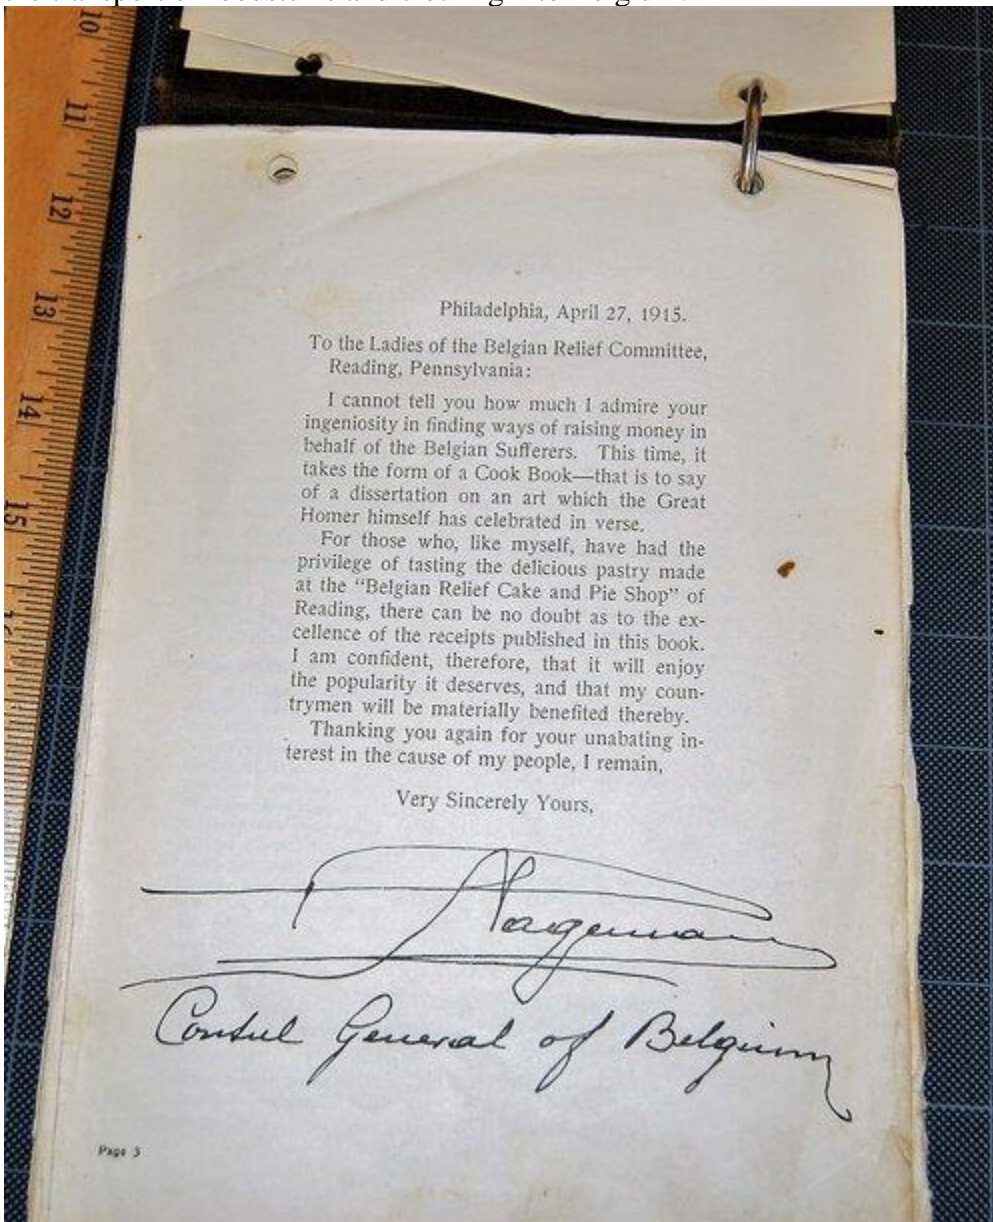 10
11
12
13
14
15
Philadelphia, April 27, 1915.
To the Ladies of the Belgian Relief Committee,
Reading, Pennsylvania:
I cannot tell you how much I admire your
ingeniosity in finding ways of raising money in
behalf of the Belgian Sufferers. This time, it
takes the form of a Cook Book—that is to say
of a dissertation on an art which the Great
Homer himself has celebrated in verse.
For those who, like myself, have had the
privilege of tasting the delicious pastry made
at the “Belgian Relief Cake and Pie Shop” of
Reading, there can be no doubt as to the ex-
cellence of the receipts published in this book.
I am confident, therefore, that it will enjoy
the popularity it deserves, and that my coun-
trymen will be materially benefited thereby.
Thanking you again for your unabating in-
terest in the cause of my people, I remain,
Very Sincerely Yours,
Consul General of Belgium
Page 3